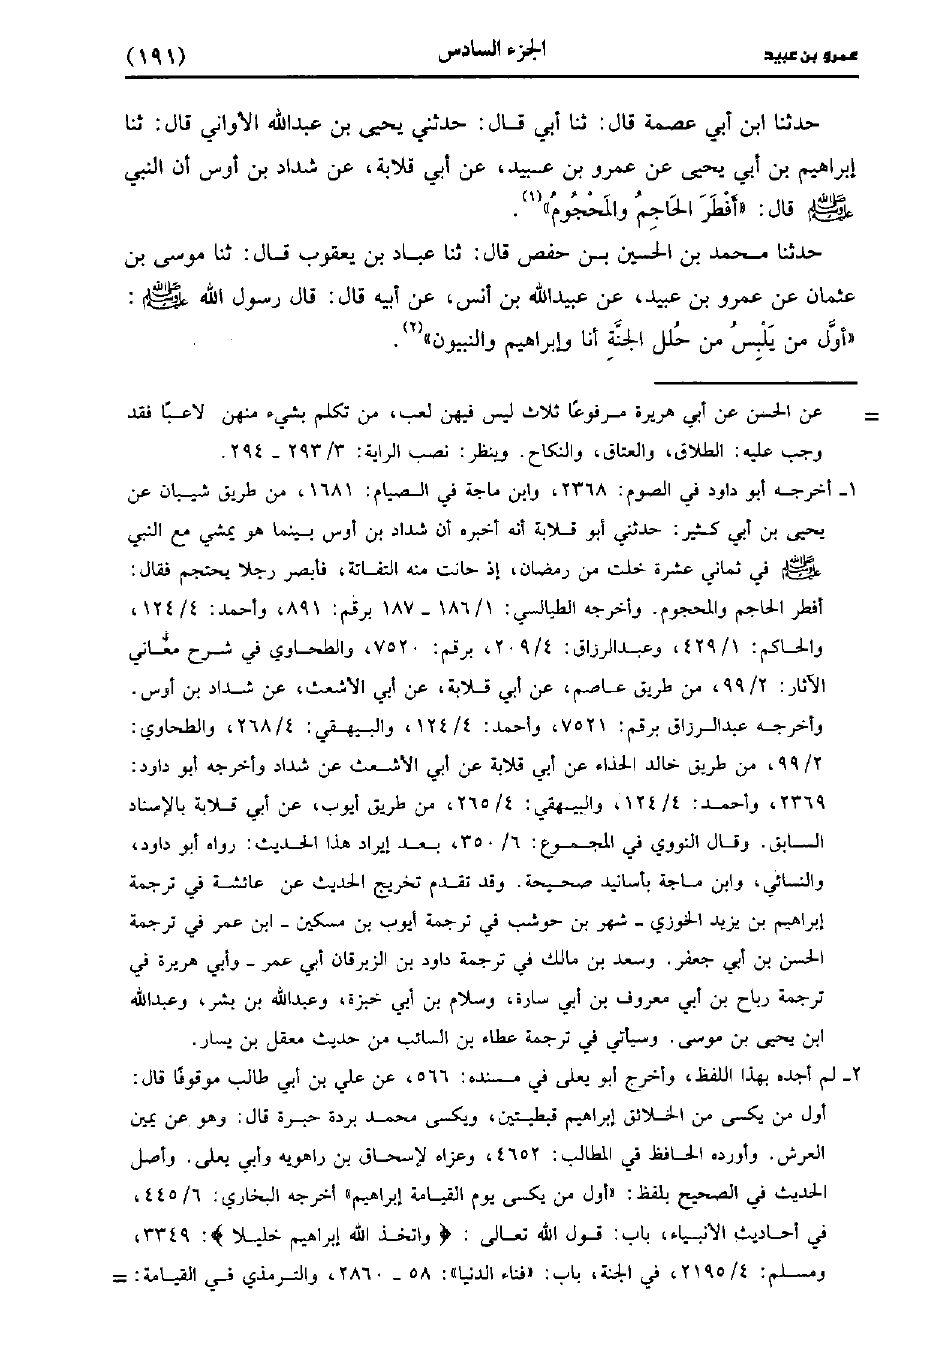 عمرو بن عبيد الجزء السادس (١٩١)
حدثنا ابن أبي عصمة قال: ثنا أبي قال: حدثني يحيى بن عبدالله الأواني قال: ثنا
إبراهيم بن أبي يحيى عن عمرو بن عبيد، عن أبي قلابة، عن شداد بن أوس أن النبي
ﷺ قال: «أَفْطَرَ الحَاجِمُ والمَحْجُومُ»(١).
حدثنا محمد بن الحسين بن حفص قال: ثنا عباد بن يعقوب قال: ثنا موسى بن
عثمان عن عمرو بن عبيد، عن عبيدالله بن أنس، عن أبيه قال: قال رسول الله ﷺ:
«أوَّل من يَلْبِسُ من حُلَل الجنَّةِ أنا وإبراهيم والنبيون»(٢).
= عن الحسن عن أبي هريرة مرفوعًا ثلاث ليس فيهن لعب، من تكلم بشيء منهن لاعبًا فقد
وجب عليه: الطلاق، والعتاق، والنكاح. وينظر: نصب الراية: ٣/ ٢٩٣ ـ ٢٩٤.
١ـ أخرجه أبو داود في الصوم: ٢٣٦٨، وابن ماجة في الصيام: ١٦٨١، من طريق شيبان عن
يحيى بن أبي كثير: حدثني أبو قلابة أنه أخبره أن شداد بن أوس بينما هو يمشي مع النبي
ﷺ في ثماني عشرة خلت من رمضان، إذ حانت منه التفاتة، فأبصر رجلا يحتجم فقال:
أفطر الحاجم والمحجوم. وأخرجه الطيالسي: ١/ ١٨٦ ـ ١٨٧ برقم: ٨٩١، وأحمد: ٤/ ١٢٤،
والحاكم: ١/ ٤٢٩، وعبدالرزاق: ٤/ ٢٠٩، برقم: ٧٥٢٠، والطحاوي في شرح معاني
الآثار: ٢/ ٩٩، من طريق عاصم، عن أبي قلابة، عن أبي الأشعث، عن شداد بن أوس.
وأخرجه عبدالرزاق برقم: ٧٥٢١، وأحمد: ٤/ ١٢٤، والبيهقي: ٤/ ٢٦٨، والطحاوي:
٢/ ٩٩، من طريق خالد الحذاء عن أبي قلابة عن أبي الأشعث عن شداد وأخرجه أبو داود:
٢٣٦٩، وأحمد: ٤/ ١٢٤، والبيهقي: ٤/ ٢٦٥، من طريق أيوب، عن أبي قلابة بالإسناد
السابق. وقال النووي في المجموع: ٦/ ٣٥٠، بعد إيراد هذا الحديث: رواه أبو داود،
والنسائي، وابن ماجة بأسانيد صحيحة. وقد تقدم تخريج الحديث عن عائشة في ترجمة
إبراهيم بن يزيد الخوزي ـ شهر بن حوشب في ترجمة أيوب بن مسكين ـ ابن عمر في ترجمة
الحسن بن أبي جعفر. وسعد بن مالك في ترجمة داود بن الزبرقان أبي عمر ـ وأبي هريرة في
ترجمة رباح بن أبي معروف بن أبي سارة، وسلام بن أبي خبزة، وعبدالله بن بشر، وعبدالله
ابن يحيى بن موسى. وسيأتي في ترجمة عطاء بن السائب من حديث معقل بن يسار.
٢ـ لم أجده بهذا اللفظ، وأخرج أبو يعلى في مسنده: ٥٦٦، عن علي بن أبي طالب موقوفًا قال:
أول من يكسى من الخلائق إبراهيم قبطيتين، ويكسى محمد بردة حبرة قال: وهو عن يمين
العرش. وأورده الحافظ في المطالب: ٤٦٥٢، وعزاه لإسحاق بن راهويه وأبي يعلى. وأصل
الحديث في الصحيح بلفظ: «أول من يكسى يوم القيامة إبراهيم» أخرجه البخاري: ٦/ ٤٤٥،
في أحاديث الأنبياء، باب: قول الله تعالى: ﴿واتخذ الله إبراهيم خليلا﴾: ٣٣٤٩،
ومسلم: ٤/ ٢١٩٥، في الجنة، باب: «فناء الدنيا»: ٥٨ ـ ٢٨٦٠، والترمذي في القيامة: =